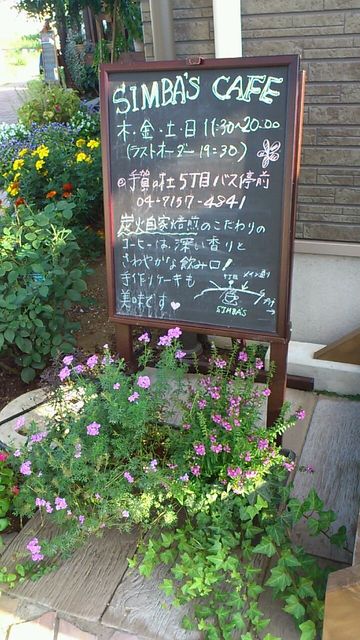 SIMBA'S CAFE
木・金・土・日 11:30~20:00
(ラストオーダー 19:30)
手賀の杜5丁目バス停前
04-7157-4841
炭火自家焙煎のこだわりの
コーヒーは、深い香りと
さわやかな飲み口!
手作りケーキも
美味です♥
SIMBA'S